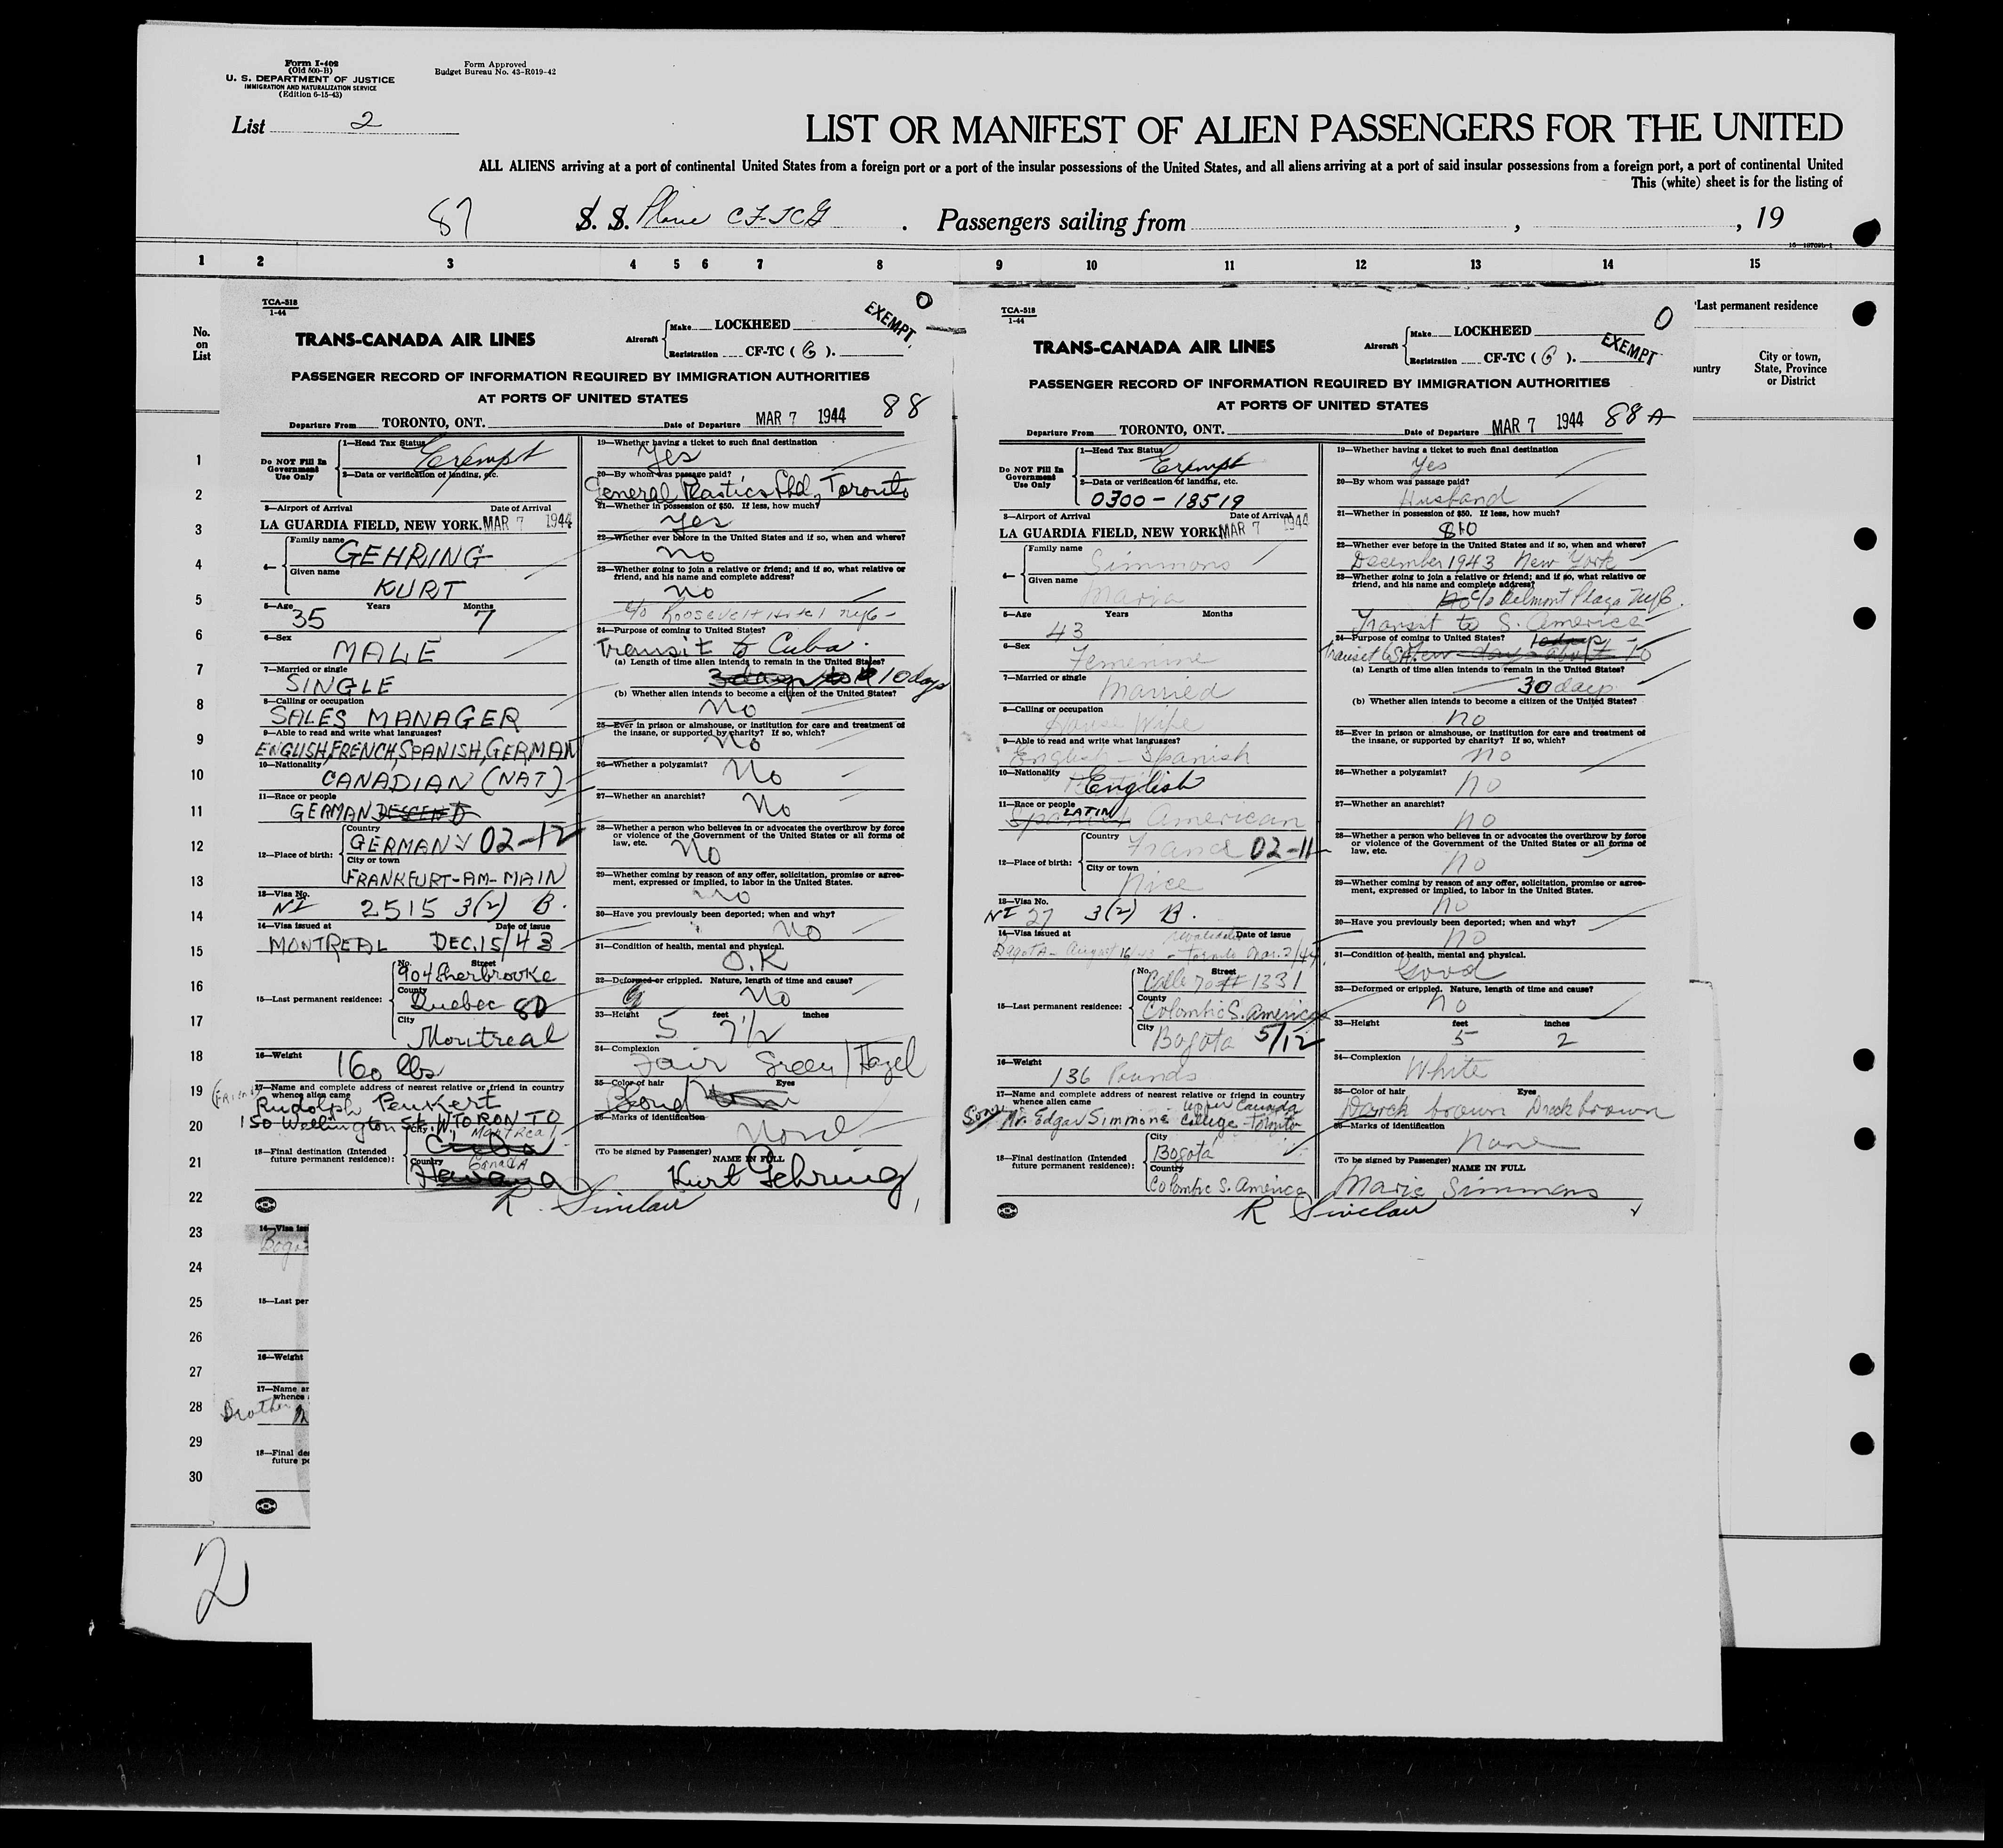 Form I-408
(Old 500-B)
U. S. DEPARTMENT OF JUSTICE
IMMIGRATION AND NATURALIZATION SERVICE
(Edition 6-15-43)
Form Approved
Budget Bureau No. 43-R019-42
List 2
LIST OR MANIFEST OF ALIEN PASSENGERS FOR THE UNITED
ALL ALIENS arriving at a port of continental United States from a foreign port or a port of the insular possessions of the United States, and all aliens arriving at a port of said insular possessions from a foreign port, a port of continental United
This (white) sheet is for the listing of
87 S. S. Plane CF-TCG . Passengers sailing from , , 19
1 2 3 4 5 6 7 8 9 10 11 12 13 14 15
No.
on
List
'Last permanent residence
untry
City or town,
State, Province
or District
TCA-518
1-44
TRANS-CANADA AIR LINES
Aircraft
Make LOCKHEED
Registration CF-TC ( G ).
EXEMPT
0
PASSENGER RECORD OF INFORMATION REQUIRED BY IMMIGRATION AUTHORITIES
AT PORTS OF UNITED STATES
88
Departure From TORONTO, ONT. Date of Departure MAR 7 1944
Do NOT Fill In
Government
Use Only
1—Head Tax Status
Exempt
2—Data or verification of landing, etc.
3—Airport of Arrival Date of Arrival
LA GUARDIA FIELD, NEW YORK. MAR 7 1944
4—
Family name
GEHRING
Given name
KURT
5—Age Years Months
35 7
6—Sex
MALE
7—Married or single
SINGLE
8—Calling or occupation
SALES MANAGER
9—Able to read and write what languages?
ENGLISH, FRENCH, SPANISH, GERMAN
10—Nationality
CANADIAN (NAT)
11—Race or people
GERMAN DESCEND
12—Place of birth:
Country
GERMANY 02-12
City or town
FRANKFURT-AM-MAIN
13—Visa No.
NI 2515 3(2) B.
14—Visa issued at Date of issue
MONTREAL DEC.15/43
15—Last permanent residence:
No. Street
904 Sherbrooke
County
Quebec 80
City
Montreal
16—Weight
160 lbs
17—Name and complete address of nearest relative or friend in country
whence alien came
(Friend)
Rudolph Penkert
150 Wellington St. W. TORONTO
18—Final destination (Intended
future permanent residence):
City
Montreal
Cuba
Country
Canada
Havana
19—Whether having a ticket to such final destination
Yes
20—By whom was passage paid?
General Plastics Ltd., Toronto
21—Whether in possession of $50. If less, how much?
Yes
22—Whether ever before in the United States and if so, when and where?
No
23—Whether going to join a relative or friend; and if so, what relative or
friend, and his name and complete address?
No
c/o Roosevelt Hotel NYC
24—Purpose of coming to United States?
Transit to Cuba.
(a) Length of time alien intends to remain in the United States?
3 days to 10 days
(b) Whether alien intends to become a citizen of the United States?
No
25—Ever in prison or almshouse, or institution for care and treatment of
the insane, or supported by charity? If so, which?
No
26—Whether a polygamist?
No
27—Whether an anarchist?
No
28—Whether a person who believes in or advocates the overthrow by force
or violence of the Government of the United States or all forms of
law, etc.
No
29—Whether coming by reason of any offer, solicitation, promise or agree-
ment, expressed or implied, to labor in the United States.
No
30—Have you previously been deported; when and why?
No
31—Condition of health, mental and physical.
O.K
32—Deformed or crippled. Nature, length of time and cause?
No
33—Height feet inches
5 7 1/2
34—Complexion
Fair Green/Hazel
35—Color of hair Eyes
Blond
36—Marks of identification
None
(To be signed by Passenger)
NAME IN FULL
Kurt Gehring
R. Sinclair
TCA-518
1-44
TRANS-CANADA AIR LINES
Aircraft
Make LOCKHEED
Registration CF-TC ( G ).
EXEMPT
0
PASSENGER RECORD OF INFORMATION REQUIRED BY IMMIGRATION AUTHORITIES
AT PORTS OF UNITED STATES
88 A
Departure From TORONTO, ONT. Date of Departure MAR 7 1944
Do NOT Fill In
Government
Use Only
1—Head Tax Status
Exempt
2—Data or verification of landing, etc.
0300-18519
3—Airport of Arrival Date of Arrival
LA GUARDIA FIELD, NEW YORK. MAR 7 1944
4—
Family name
Simmons
Given name
Maria
5—Age Years Months
43
6—Sex
Femenine
7—Married or single
Married
8—Calling or occupation
House Wife
9—Able to read and write what languages?
English - Spanish
10—Nationality
English
11—Race or people
Spanish LATIN American
12—Place of birth:
Country
France 02-11
City or town
Nice
13—Visa No.
NI 27 3(2) B.
14—Visa issued at Date of issue
revalidated
Bogota - August 16/43 - Toronto Mar. 2/44
15—Last permanent residence:
No. Street
Calle 70 # 1331
County
Colombie S. America
City
Bogota 5/12
16—Weight
136 Pounds
17—Name and complete address of nearest relative or friend in country
whence alien came
Upper Canada
Son Mr. Edgar Simmons College - Toronto
18—Final destination (Intended
future permanent residence):
City
Bogotá
Country
Colombie S. America
19—Whether having a ticket to such final destination
Yes
20—By whom was passage paid?
Husband
21—Whether in possession of $50. If less, how much?
$10
22—Whether ever before in the United States and if so, when and where?
December 1943 New York
23—Whether going to join a relative or friend; and if so, what relative or
friend, and his name and complete address?
No c/o Belmont Plaza NYC.
Transit to S. America
24—Purpose of coming to United States? 10 days
Transit to SA. few days about 10
(a) Length of time alien intends to remain in the United States?
30 days
(b) Whether alien intends to become a citizen of the United States?
no
25—Ever in prison or almshouse, or institution for care and treatment of
the insane, or supported by charity? If so, which?
no
26—Whether a polygamist?
no
27—Whether an anarchist?
no
28—Whether a person who believes in or advocates the overthrow by force
or violence of the Government of the United States or all forms of
law, etc.
no
29—Whether coming by reason of any offer, solicitation, promise or agree-
ment, expressed or implied, to labor in the United States.
no
30—Have you previously been deported; when and why?
no
31—Condition of health, mental and physical.
Good
32—Deformed or crippled. Nature, length of time and cause?
no
33—Height feet inches
5 2
34—Complexion
White
35—Color of hair Eyes
Darck brown Darck brown
36—Marks of identification
None
(To be signed by Passenger)
NAME IN FULL
Marie Simmons
R Sinclair
1
2
3
4
5
6
7
8
9
10
11
12
13
14
15
16
17
18
19
20
21
22
23
24
25
26
27
28
29
30
14—Visa iss
Bogo
15—Last per
16—Weight
17—Name an
whence
Brother
18—Final des
future pe
2